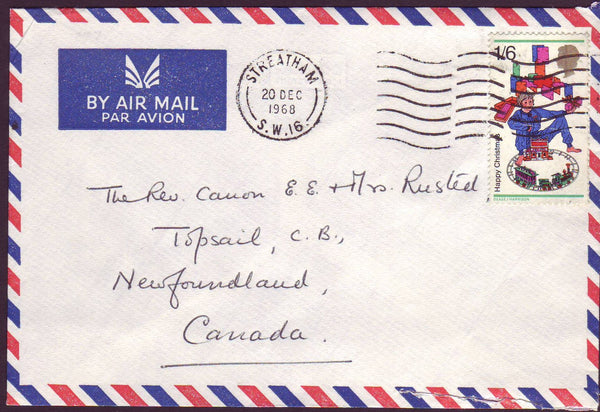 BY AIR MAIL
PAR AVION
STREATHAM
20 DEC
1968
S.W.16.
1/6
Happy Christmas
ROSALIND DEASE HARRISON
The Rev. Canon E.E. + Mrs. Rusted
Topsail, C.B.,
Newfoundland,
Canada.